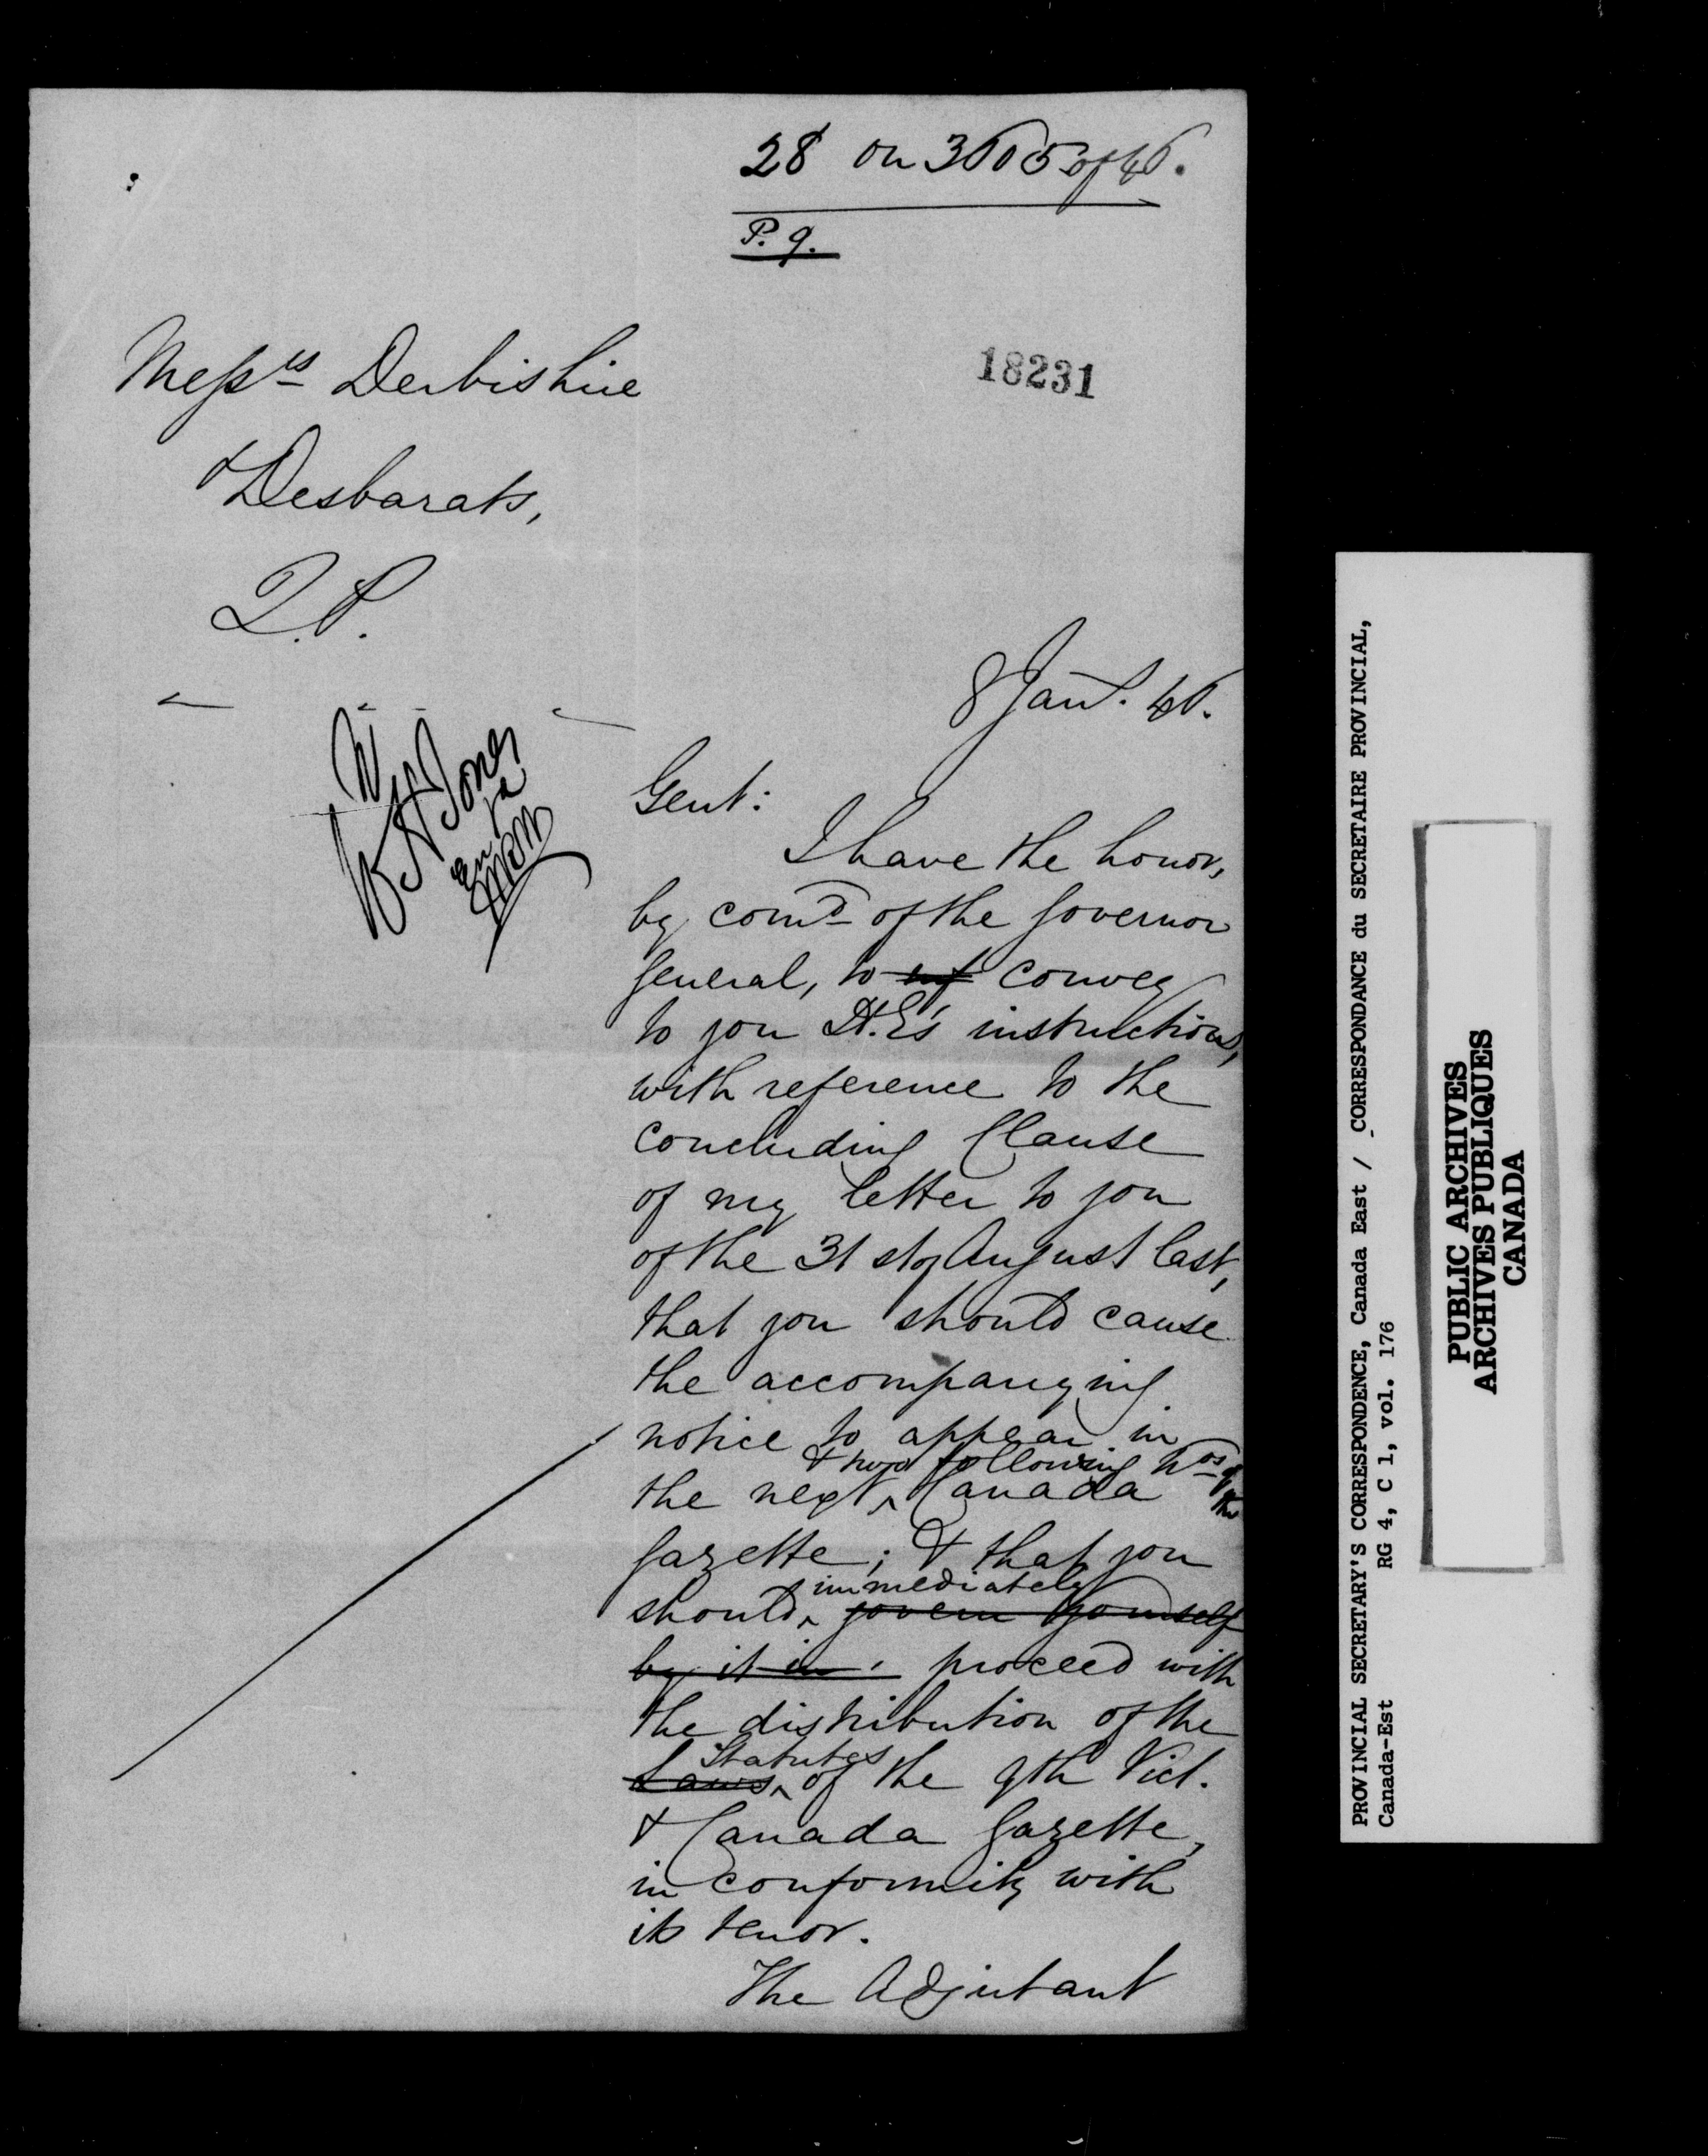 28 on 3605 of 46.
P. 9.
18231
Messrs Derbishire
& Desbarats,
Q.P.
8 Jany. 46.
W H Jones
Gent:
I have the honor,
by comd of the Governor
General, to inf convey
to you H.E's instructions,
with reference to the
concluding Clause
of my letter to you
of the 31st of August last,
that you should cause
the accompanying
notice to appear in
& two following Nos of the
the next Canada
Gazette; & that you
immediately
should govern yourself
by it in proceed with
the distribution of the
Statutes
Laws of the 9th Vict.
& Canada Gazette,
in conformity with
its tenor.
The Adjutant
PROVINCIAL SECRETARY'S CORRESPONDENCE, Canada East / CORRESPONDANCE du SECRETAIRE PROVINCIAL,
Canada-Est RG 4, C 1, vol. 176
PUBLIC ARCHIVES
ARCHIVES PUBLIQUES
CANADA